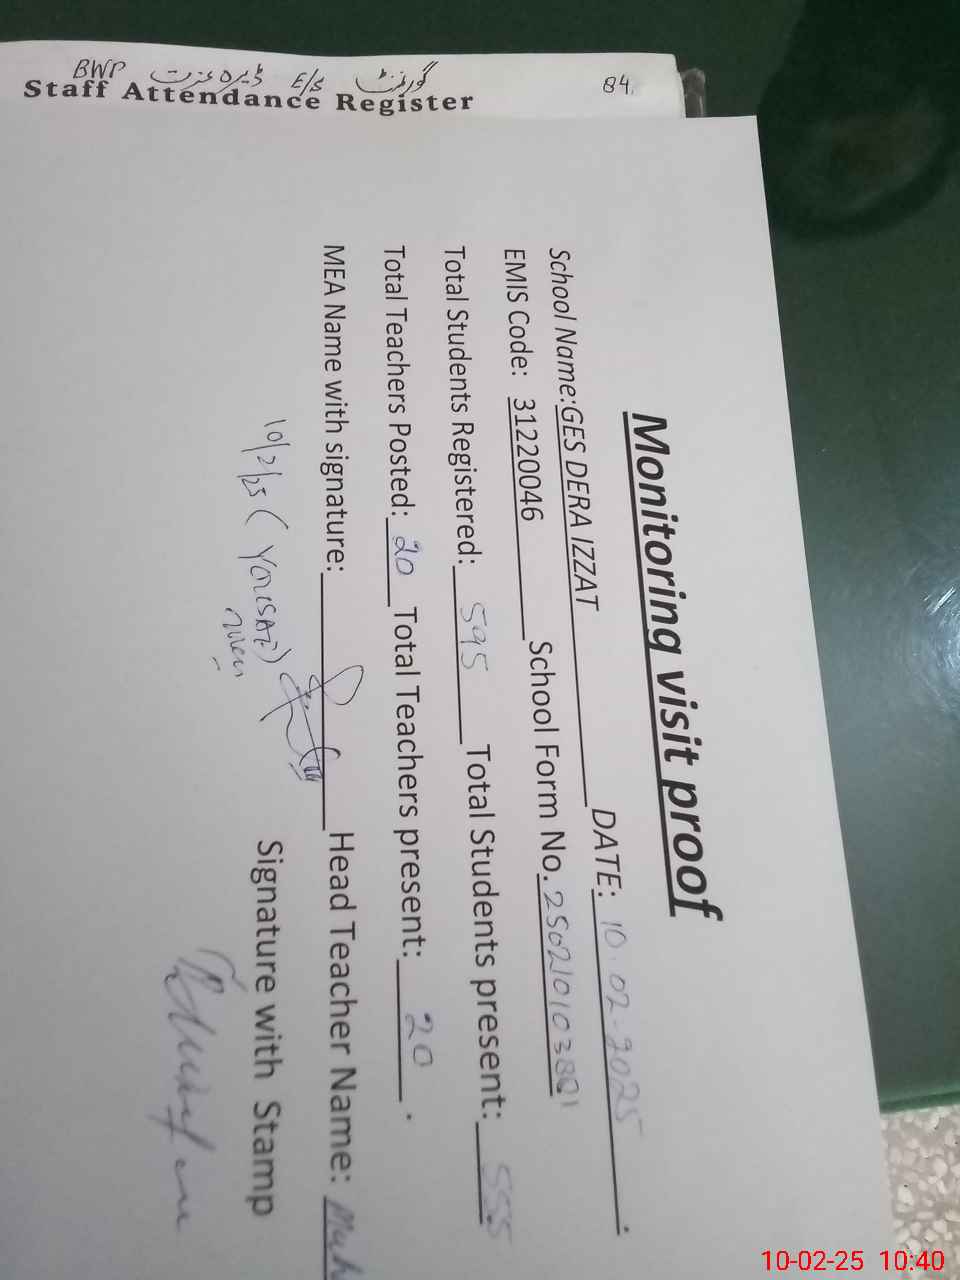 BWP گورنمنٹ E/S ڈیرہ عزت 84
Staff Attendance Register
Monitoring visit proof
School Name:GES DERA IZZAT DATE: 10.02-2025.
EMIS Code: 31220046 School Form No. 2502101038Q1
Total Students Registered: 595 Total Students present: 555
Total Teachers Posted: 20 Total Teachers present: 20.
MEA Name with signature: Head Teacher Name: Muh
10/2/25 ( Signature with Stamp
10-02-25 10:40